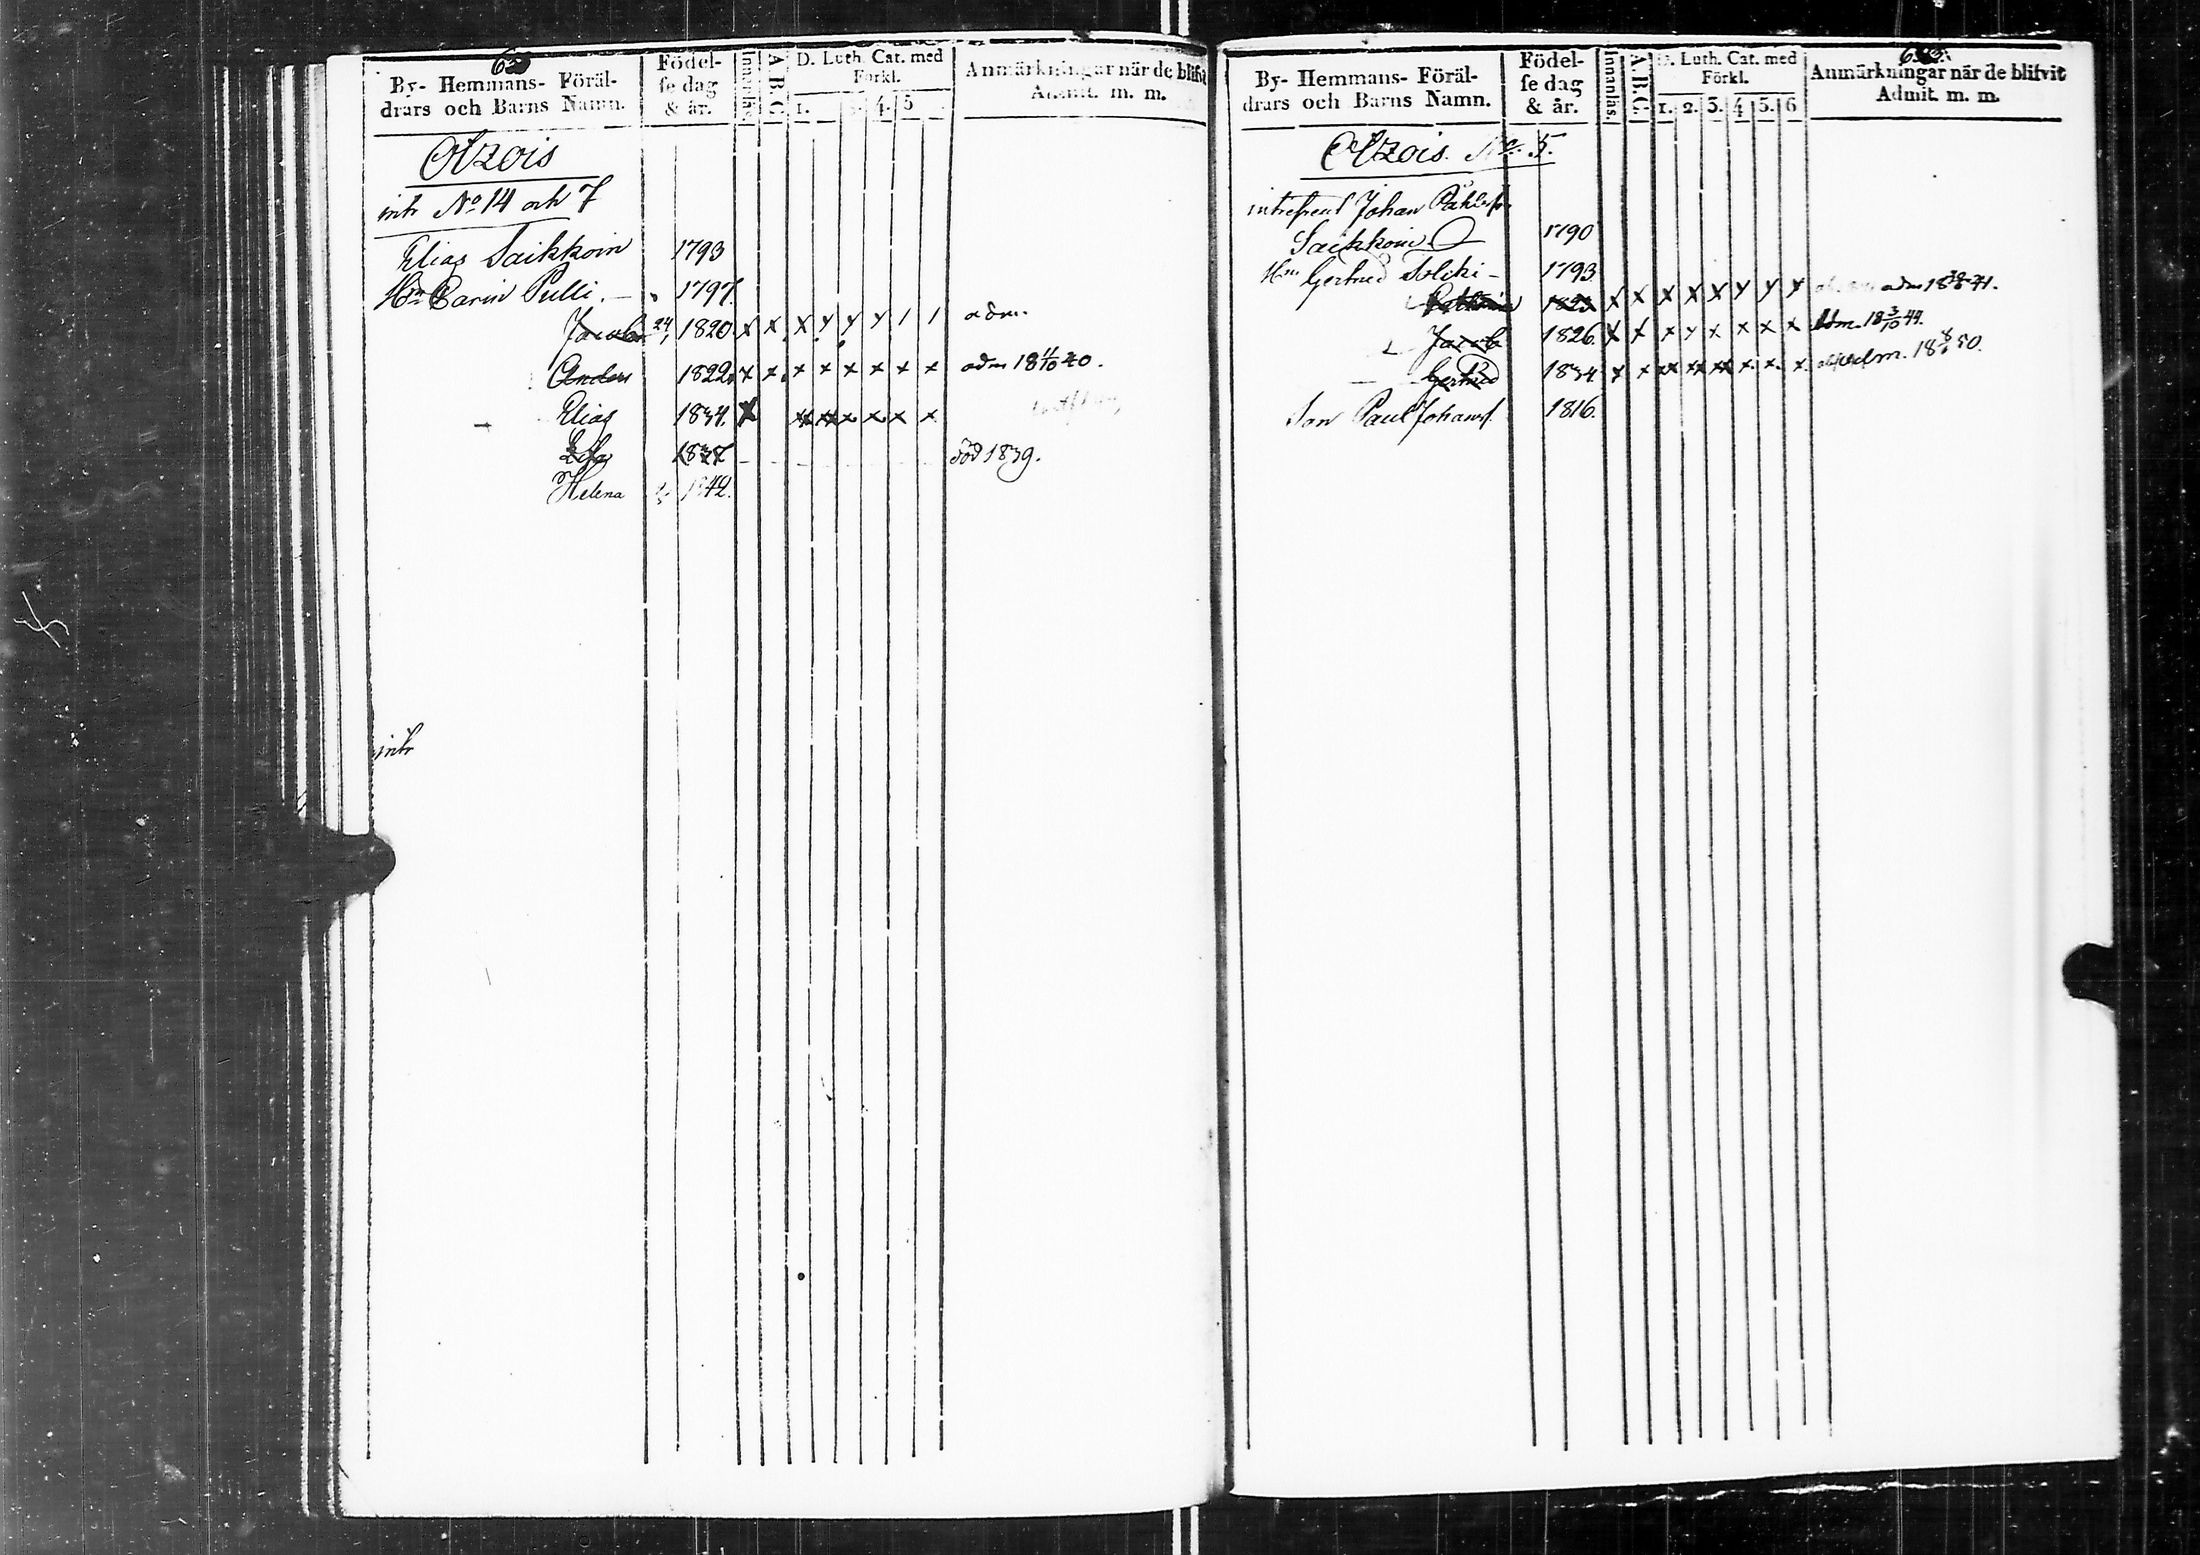 By- Hemmans- Föräl-
drars och Barns Namn.
Födel-
se dag
& år.
Innanläs.
A.B.C.
D. Luth. Cat. med
Förkl.
1. 3. 4. 5
Anmärkningar när de blifvit
Admit. m. m.
intr No 14 och 7
Elias Saikkoin 1793
Hm Carin Pulli. 1797.
Jacob 24/1 1820 x x x y y y 1 1 adm.
Anders 1822 x x x x x x x x adm 18 11/10 40.
Elias 1834. x x x x x x x
1837 död 1839.
Helena 1842.
intr
By- Hemmans- Föräl-
drars och Barns Namn.
Födel-
se dag
& år.
Innanläs.
A.B.C.
D. Luth. Cat. med
Förkl.
1. 2. 3. 4 5. 6
Anmärkningar när de blifvit
Admit. m. m.
No. 5.
Johan
Saikkoin 1790
Hm Gertrud 1793
1823 x x x x x y y y adm
Jacob 1826. x x x y x x x x adm. 18 3/10 44.
Gertrud 1834 x x x x x x x x adm. 18 50.
Son Paul Johansf. 1816.